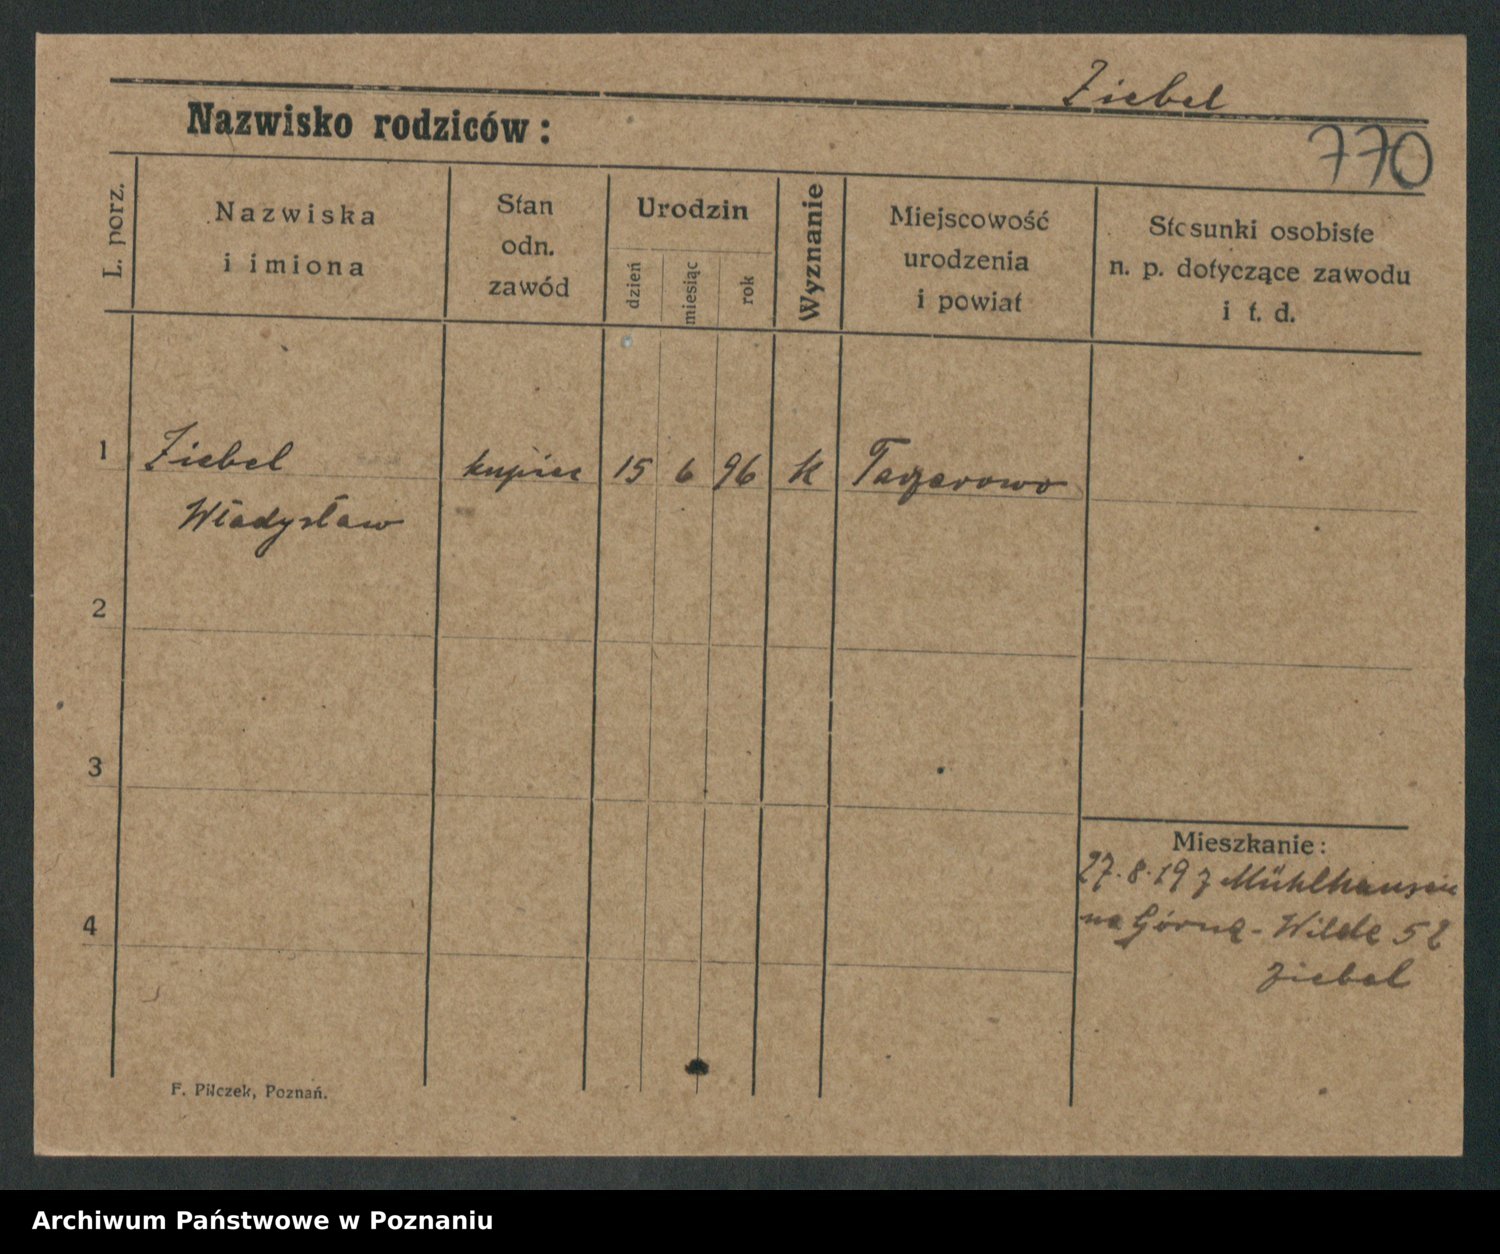 Ziebel
Nazwisko rodziców:
770
L. porz.
Nazwiska
i imiona
Stan
odn.
zawód
Urodzin
dzień
miesiąc
rok
Wyznanie
Miejscowość
urodzenia
i powiat
Stosunki osobiste
n. p. dotyczące zawodu
i t. d.
1
Ziebel
kupiec
15
6
96
k
Władysław
2
3
Mieszkanie:
27.8.19 z Mühlhausen
na Górną-Wildę 52
Ziebel
4
F. Pilczek, Poznań.
Archiwum Państwowe w Poznaniu